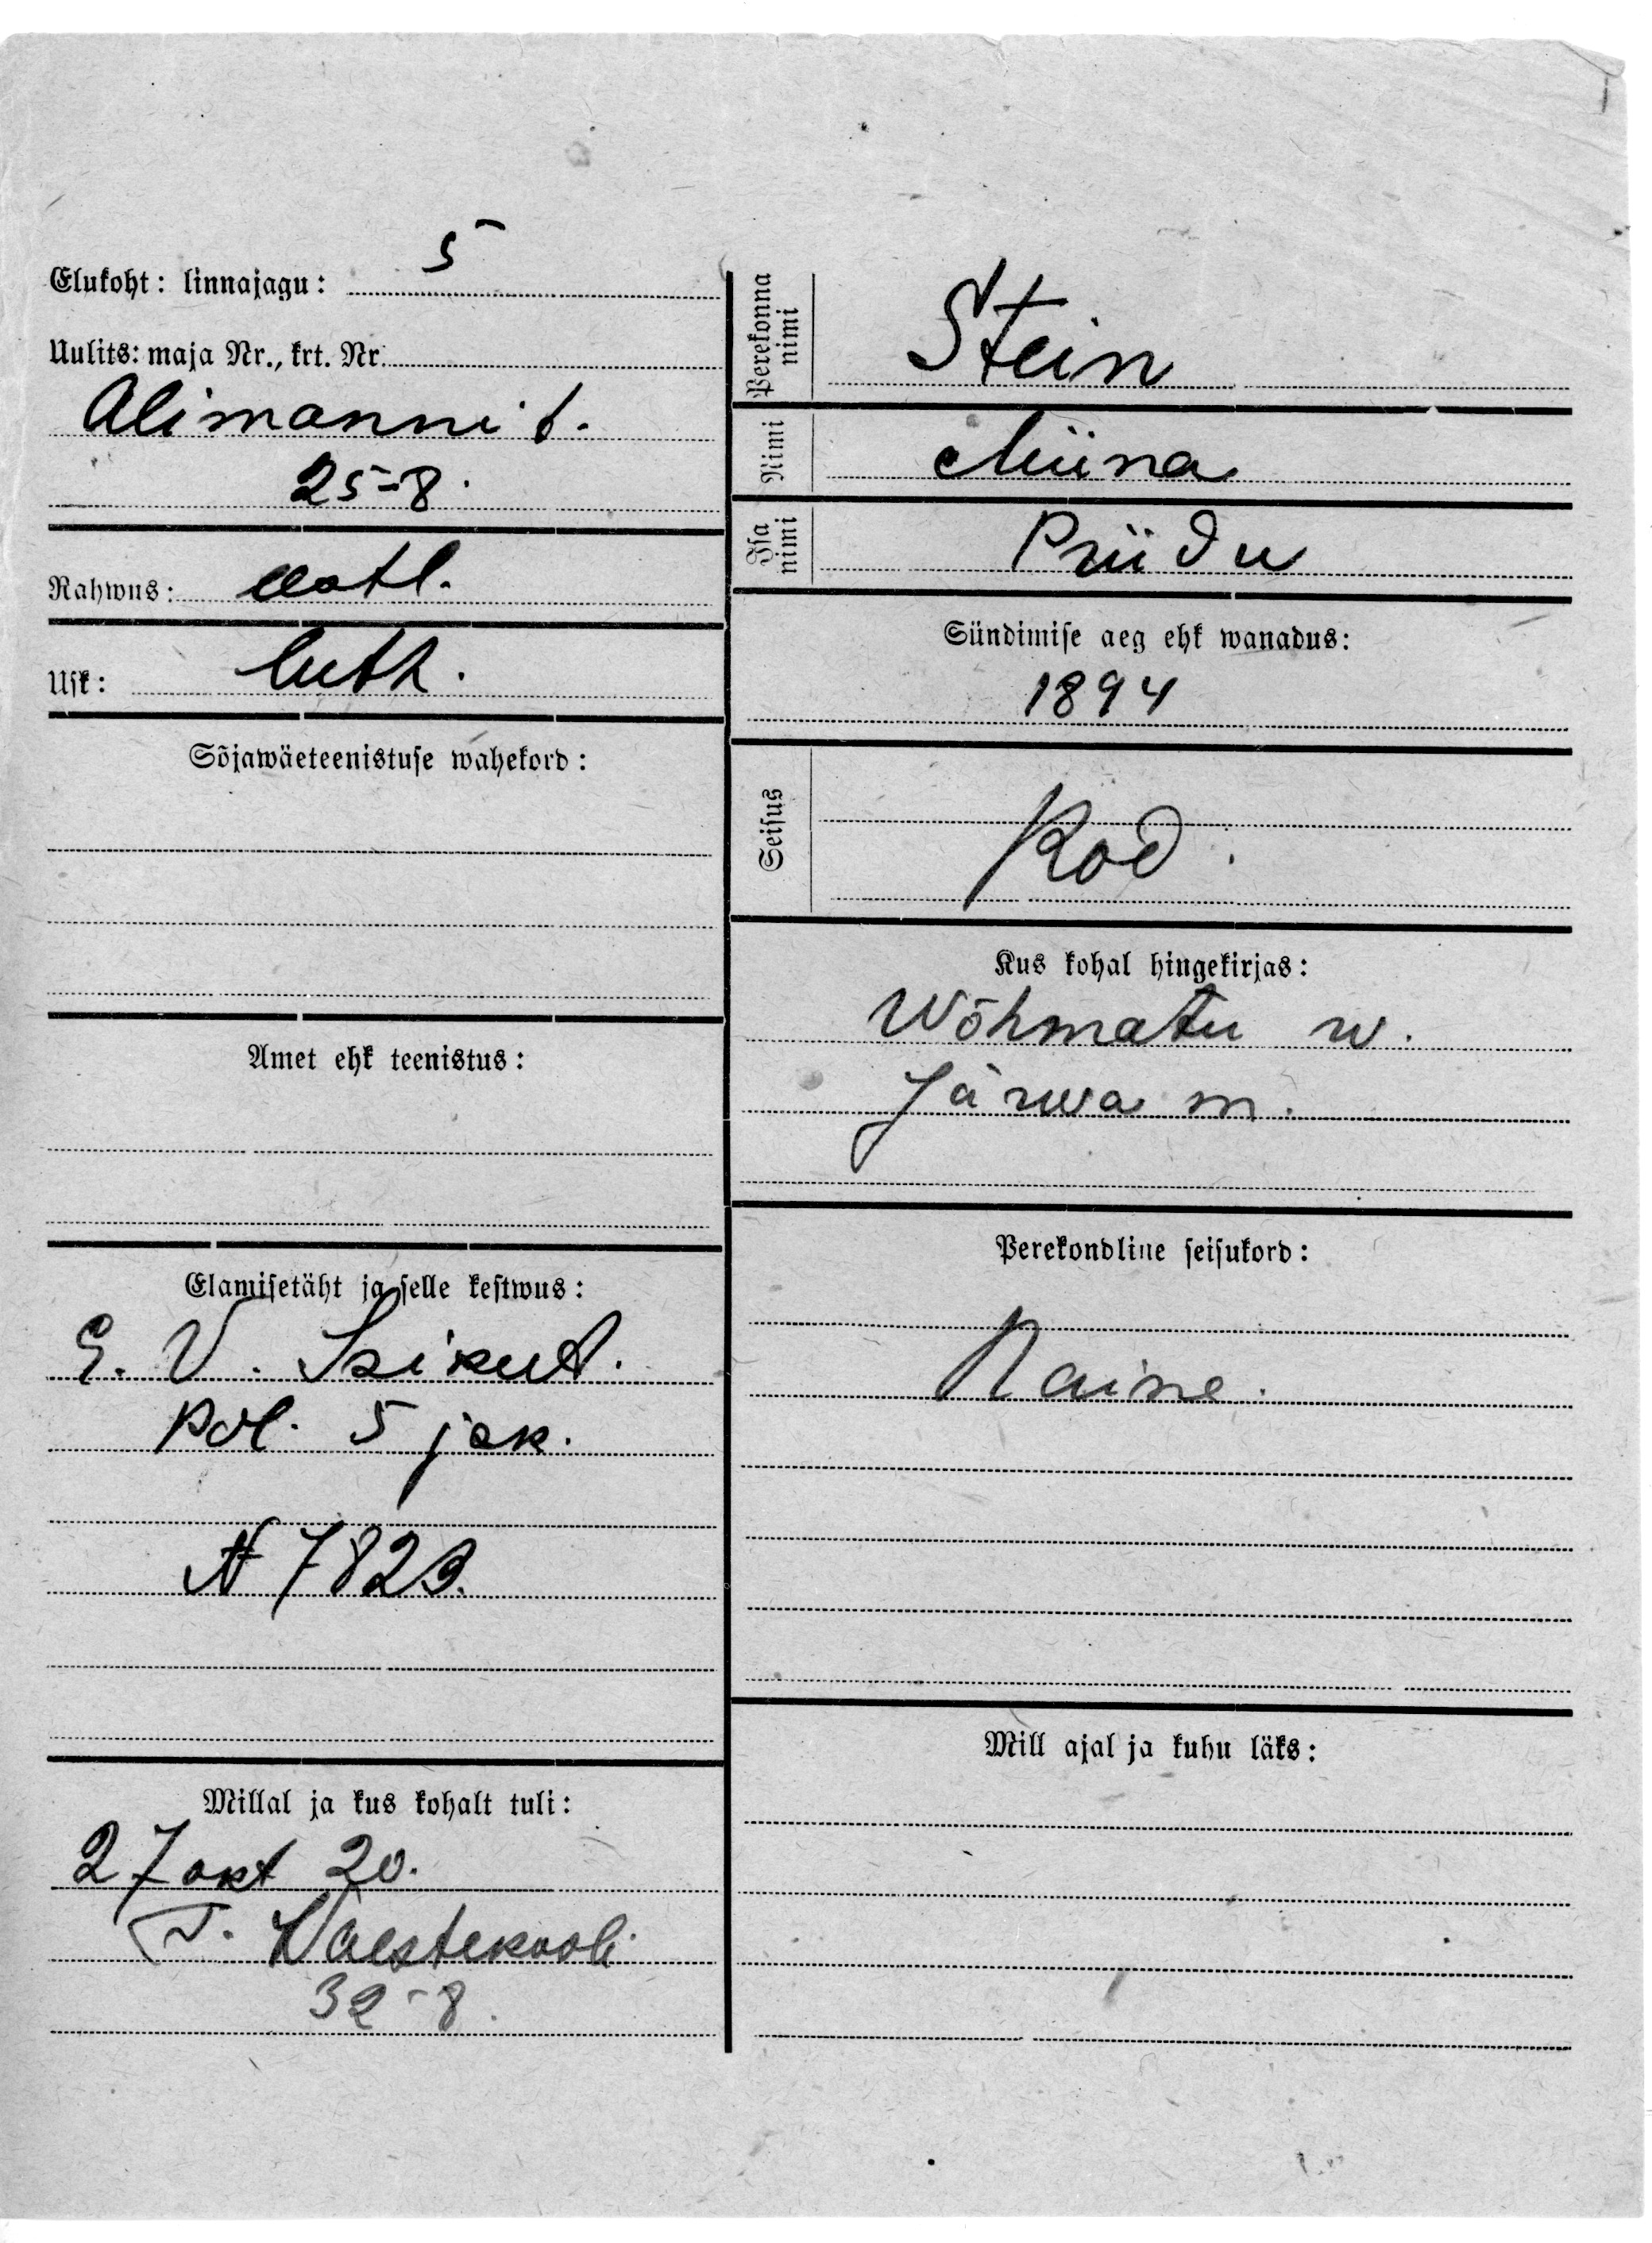 Elukoht: linnajagu: 5
Uulits: maja Nr., krt. Nr.
Alimanni t.
25-8.
Rahwus: eestl.
Usk: luth.
Sõjawäeteenistuse wahekord:
Amet ehk teenistus:
Elamisetäht ja selle kestwus:
E. V. Isikut.
Pol. 5 jak.
N 7823.
Millal ja kus kohalt tuli:
27 okt 20.
T. Waestekooli
32-8.
Perekonna nimi
Stein
Nimi
Miina
Isa nimi
Priidu
Sündimise aeg ehk wanadus:
1894
Seisus
Kod.
Kus kohal hingekirjas:
Wõhmatu w.
Järwa m.
Perekondline seisukord:
Naine.
Mill ajal ja kuhu läks: